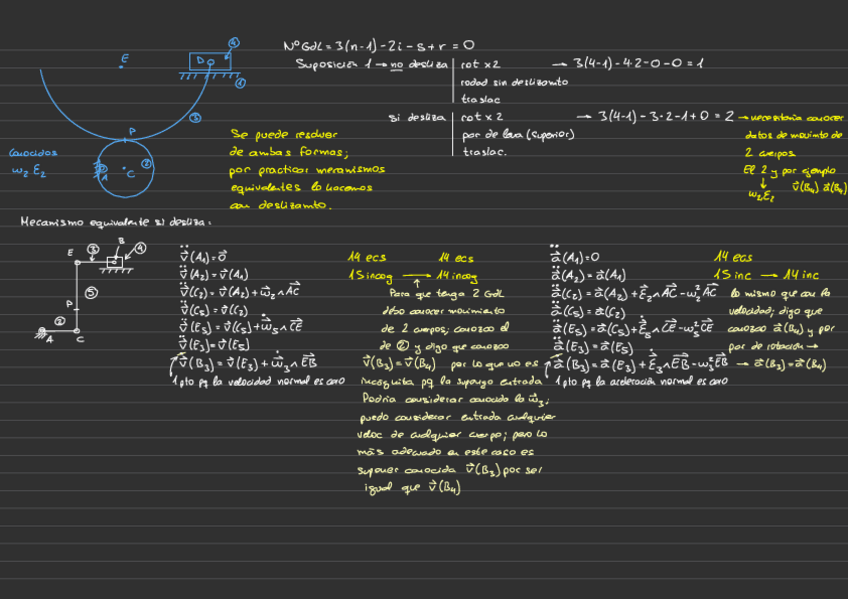 NºGdL = 3(n-1) - 2i - s + r = 0
Suposición 1 → no desliza
rot x2 → 3(4-1) - 4·2 - 0 - 0 = 1
rodad sin deslizamto
traslac
si desliza
rot x2 → 3(4-1) - 3·2 - 1 + 0 = 2 → necesitaria conocer
par de leva (superior)
datos de movimto de
traslac.
2 cuerpos
El 2 y por ejemplo
ω₂ε₂ v⃗(B₄) a⃗(B₄)
E
D
④
①
③
P
②
A
C
Conocidos
ω₂ ε₂
Se puede resolver
de ambas formas;
por practicar mecanismos
equivalentes lo hacemos
con deslizamto.
Mecanismo equivalente si desliza:
E ③ B ④
⑤
P
②
A C
v⃗(A₁) = 0⃗
v⃗(A₂) = v⃗(A₁)
v⃗(C₂) = v⃗(A₂) + ω⃗₂ ∧ AC
v⃗(C₅) = v⃗(C₂)
v⃗(E₅) = v⃗(C₅) + ω⃗₅ ∧ CE
v⃗(E₃) = v⃗(E₅)
v⃗(B₃) = v⃗(E₃) + ω⃗₃ ∧ EB
1 pto pq la velocidad normal es cero
14 ecs 14 ecs
15 incog → 14 incog
Para que tenga 2 GdL
debo conocer movimiento
de 2 cuerpos; conozco el
de ② y digo que conozco
v⃗(B₃) = v⃗(B₄) por lo que no es
incógnita pq la supongo entrada
Podria considerar conocido la ω⃗₃;
puedo considerar entrada cualquier
veloc de cualquier cuerpo; pero lo
más adecuado en este caso es
suponer conocida v⃗(B₃) por ser
igual que v⃗(B₄)
a⃗(A₁) = 0
a⃗(A₂) = a⃗(A₁)
a⃗(C₂) = a⃗(A₂) + ε⃗₂ ∧ AC - ω₂² AC
a⃗(C₅) = a⃗(C₂)
a⃗(E₅) = a⃗(C₅) + ε⃗₅ ∧ CE - ω₅² CE
a⃗(E₃) = a⃗(E₅)
a⃗(B₃) = a⃗(E₃) + ε⃗₃ ∧ EB - ω₃² EB → a⃗(B₃) = a⃗(B₄)
1 pto pq la aceleración normal es cero
14 ecs
15 inc → 14 inc
lo mismo que con la
velocidad; digo que
conozco a⃗(B₄) y por
par de rotación →